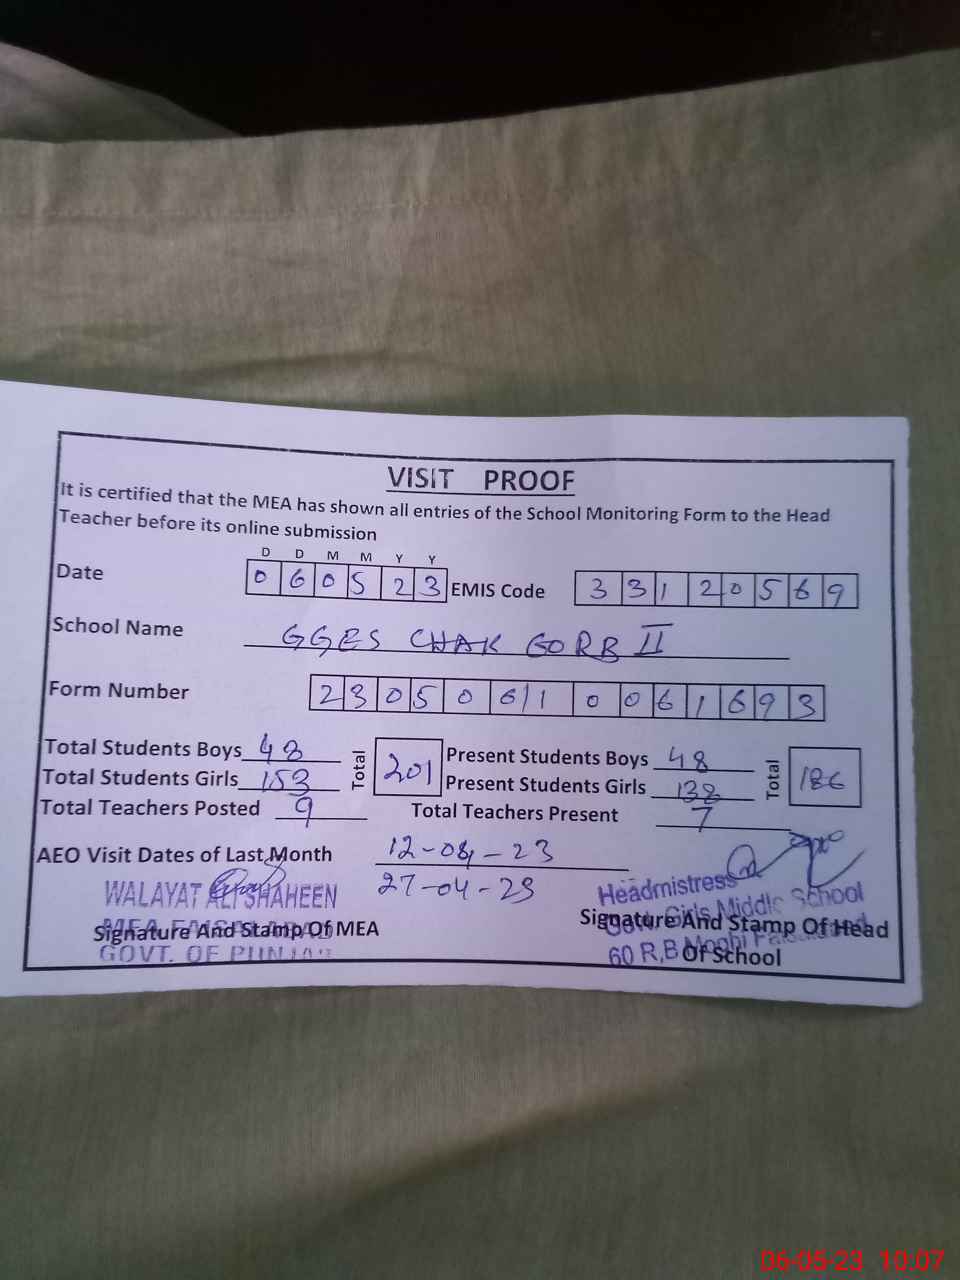 VISIT PROOF
It is certified that the MEA has shown all entries of the School Monitoring Form to the Head
Teacher before its online submission
D D M M Y Y
Date 0 6 0 5 2 3 EMIS Code 3 3 1 2 0 5 6 9
School Name GGES CHAK 60 RB II
Form Number 2 3 0 5 0 6 1 0 0 6 1 6 9 3
Total Students Boys 48 Total 201 Present Students Boys 48 Total 186
Total Students Girls 153 Present Students Girls 138
Total Teachers Posted 9 Total Teachers Present 7
AEO Visit Dates of Last Month 12-04-23
27-04-23
WALAYAT ALI SHAHEEN Headmistress
Signature And Stamp Of MEA Signature And Stamp Of Head
Girls Middle School
GOVT. OF PUNJAB 60 R,B Of School
06-05-23 10:07